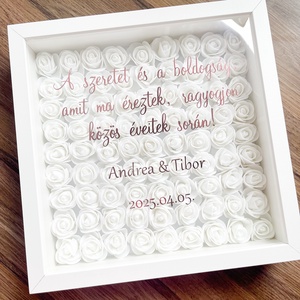 A szeretet és a boldogság,
amit ma éreztek, ragyogjon
közös éveitek során!
Andrea & Tibor
2025.04.05.